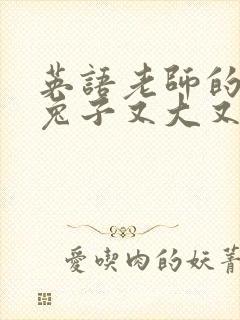 英語老師的
兔子又大又
愛喫肉的妖菁